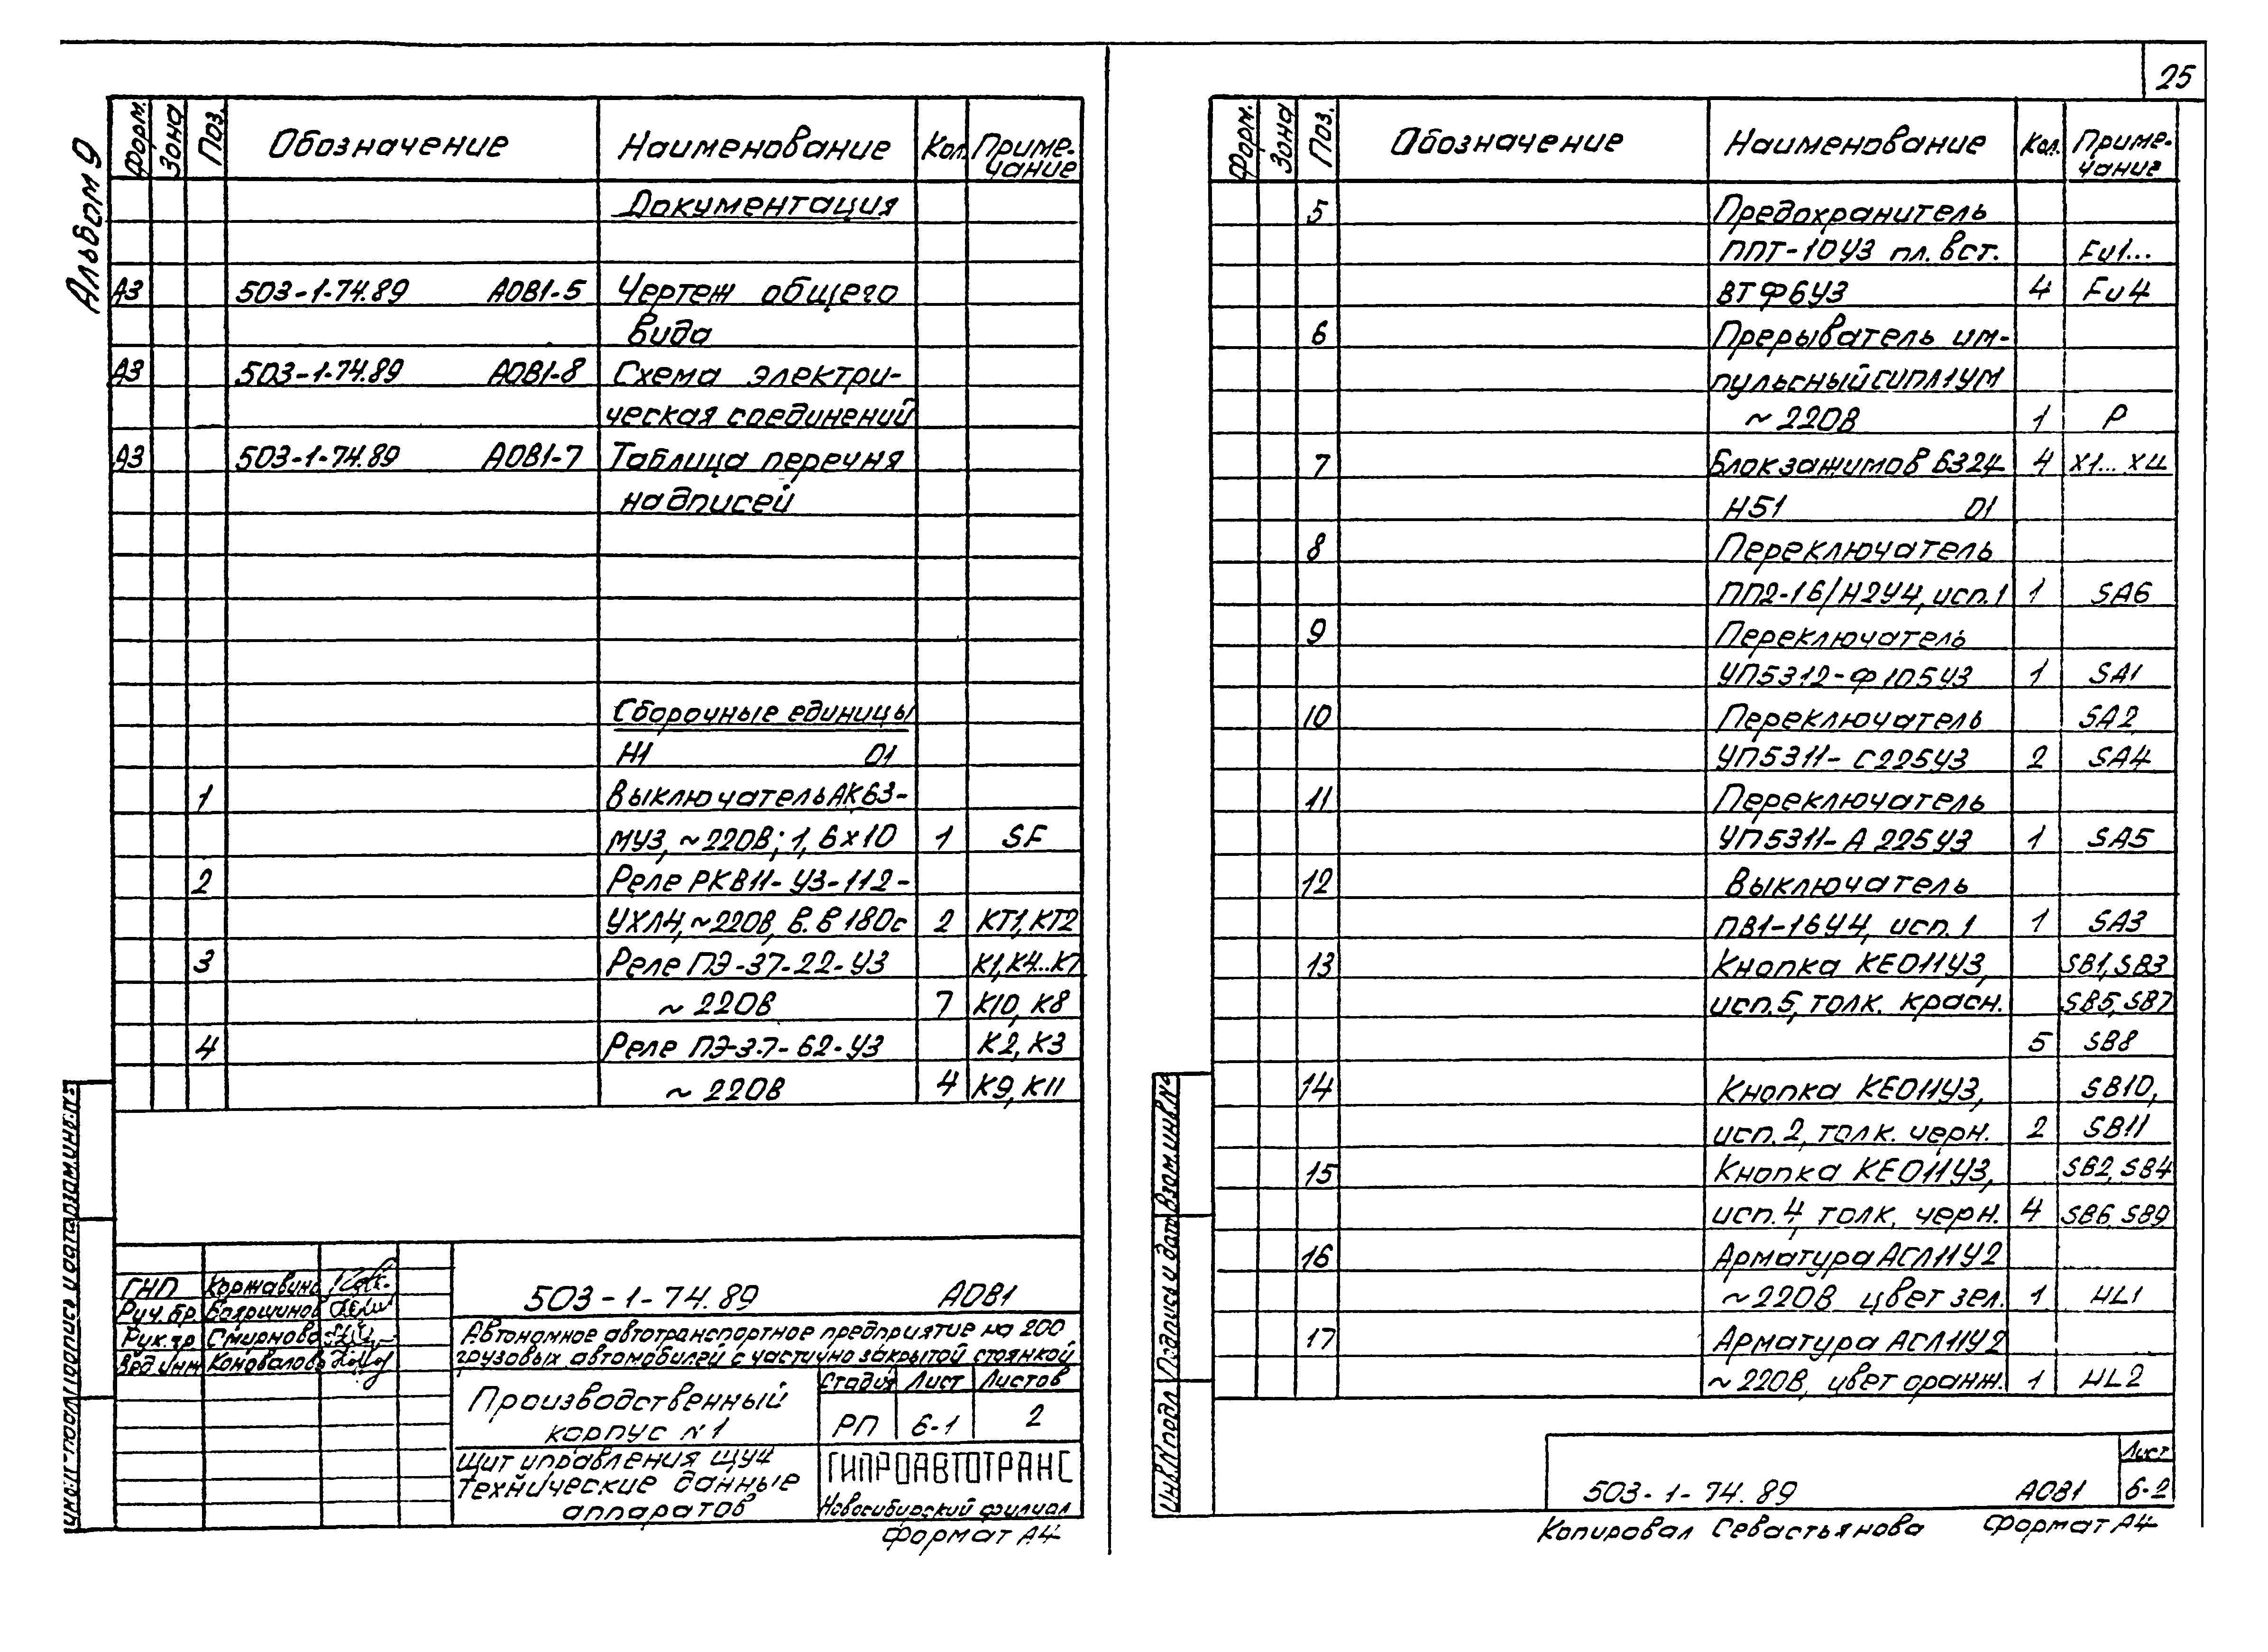 Альбом 9
Форм. Зона Поз. Обозначение Наименование Кол. Приме-
чание
Документация
А3 503-1-74.89 АОВ1-5 Чертеж общего
вида
А3 503-1-74.89 АОВ1-8 Схема электри-
ческая соединений
А3 503-1-74.89 АОВ1-7 Таблица перечня
надписей
Сборочные единицы
Н1 01
1 Выключатель АК63-
МУ3, ~220В; 1,6х10 1 SF
2 Реле РКВ11-У3-112-
УХЛ4, ~220В, в.в 180с 2 КТ1, КТ2
3 Реле ПЭ-37-22-У3 К1, К4...К7
~220В 7 К10, К8
4 Реле ПЭ-37-62-У3 К2, К3
~220В 4 К9, К11
Взам.инв.№
Подпись и дата
Инв.№ подл.
ГИП Коржавина
Рук.бр. Бояршинов
Рук.гр. Смирнова
Вед.инж Коновалов
503-1-74.89 АОВ1
Автономное автотранспортное предприятие на 200
грузовых автомобилей с частично закрытой стоянкой
Производственный
корпус №1
Стадия Лист Листов
РП 6-1 2
Щит управления ЩУ4
Технические данные
аппаратов
ГИПРОАВТОТРАНС
Новосибирский филиал
Формат А4
25
Форм. Зона Поз. Обозначение Наименование Кол. Приме-
чание
5 Предохранитель
ППТ-10У3 пл. вст. Fu1...
ВТФ6У3 4 Fu4
6 Прерыватель им-
пульсный СИПЛ1УМ
~220В 1 Р
7 Блок зажимов Б324 4 Х1...Х4
Н51 01
8 Переключатель
ПП2-16/Н2У4, исп.1 1 SA6
9 Переключатель
УП5312-Ф105У3 1 SA1
10 Переключатель SA2
УП5311-С225У3 2 SA4
11 Переключатель
УП5311-А225У3 1 SA5
12 Выключатель
ПВ1-16У4, исп.1 1 SA3
13 Кнопка КЕ011У3, SB1, SB3
исп.5, толк. красн. SB5, SB7
5 SB8
14 Кнопка КЕ011У3, SB10,
исп.2, толк. черн. 2 SB11
15 Кнопка КЕ011У3, SB2, SB4
исп.4, толк. черн. 4 SB6, SB9
16 Арматура АСЛ11У2
~220В цвет зел. 1 HL1
17 Арматура АСЛ11У2
~220В, цвет оранж. 1 HL2
Взам.инв.№
Подпись и дата
Инв.№ подл.
503-1-74.89 АОВ1
Лист
6-2
Копировал Севастьянова Формат А4